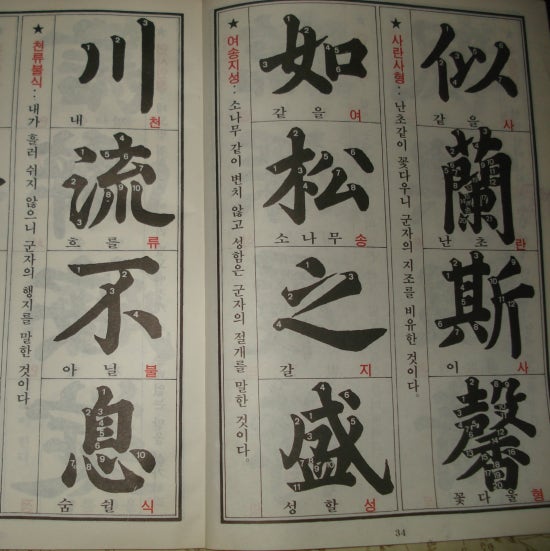 似
같을 사
蘭
난초 란
斯
이 사
馨
꽃다울 형
★ 사란사형 : 난초같이 꽃다우니 군자의 지조를 비유한 것이다.
如
같을 여
松
소나무 송
之
갈 지
盛
성할 성
★ 여송지성 : 소나무 같이 변치 않고 성함은 군자의 절개를 말한 것이다.
川
내 천
流
흐를 류
不
아닐 불
息
숨쉴 식
★ 천류불식 : 내가 흘러 쉬지 않으니 군자의 행지를 말한 것이다
34